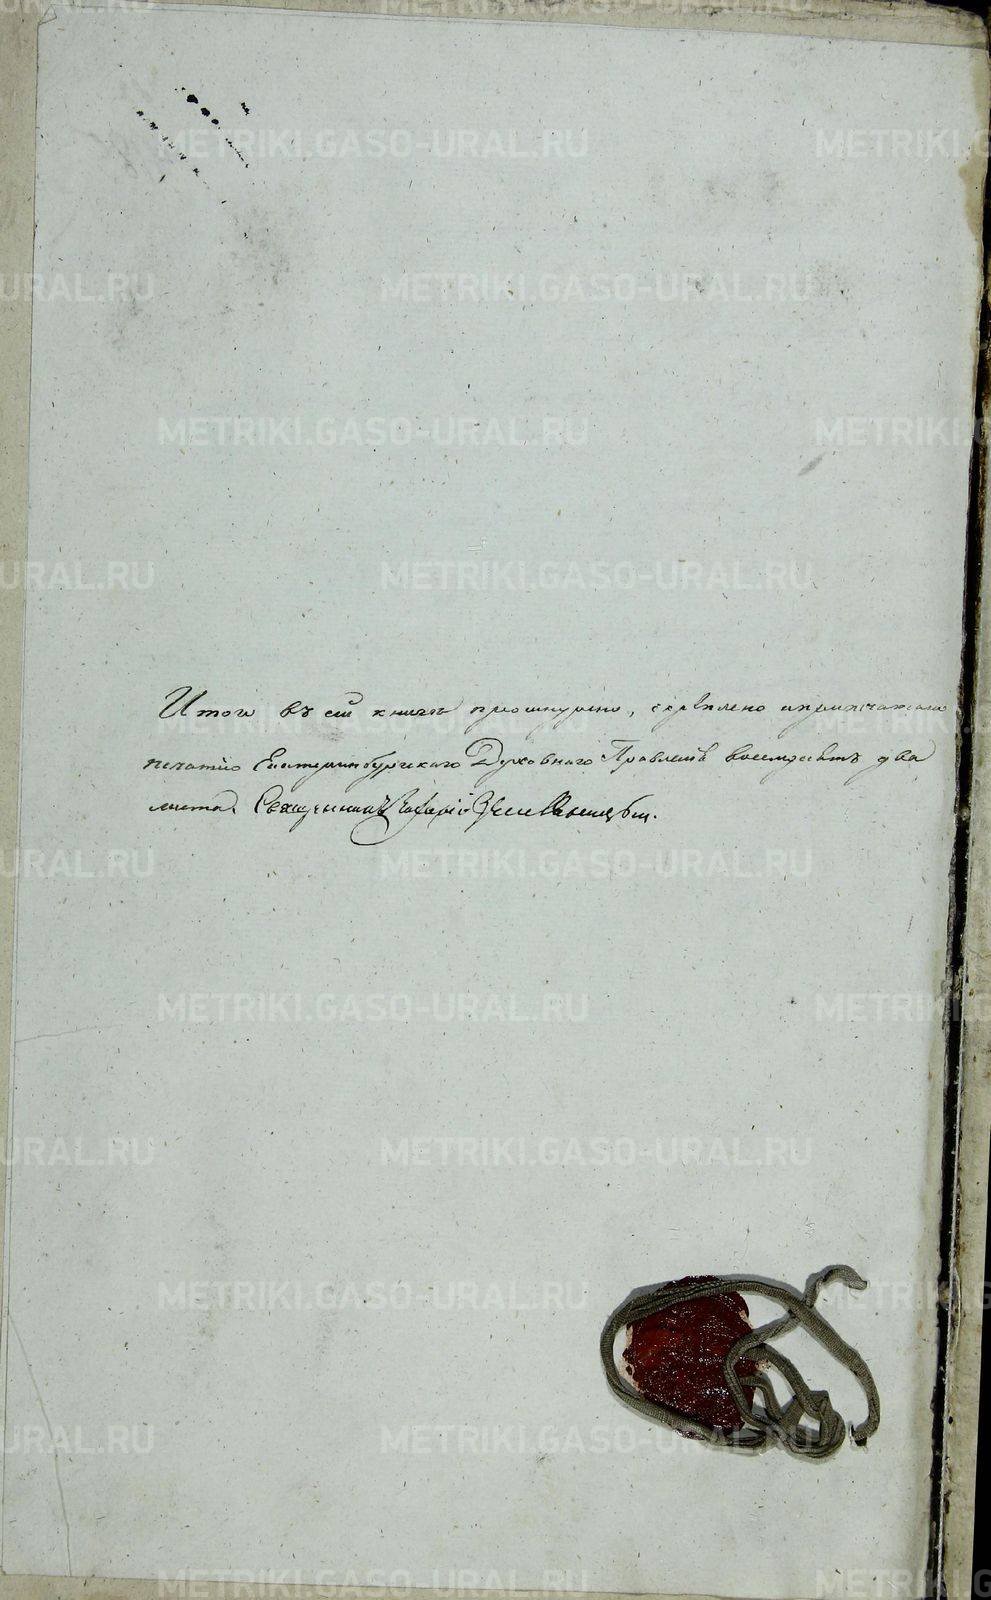 Итого въ сей книгѣ прошнурено, скрѣплено и припечатано
печатью Екатеринбургскаго Духовнаго Правленія восемдесятъ два
листа. Священникъ
METRIKI.GASO-URAL.RU